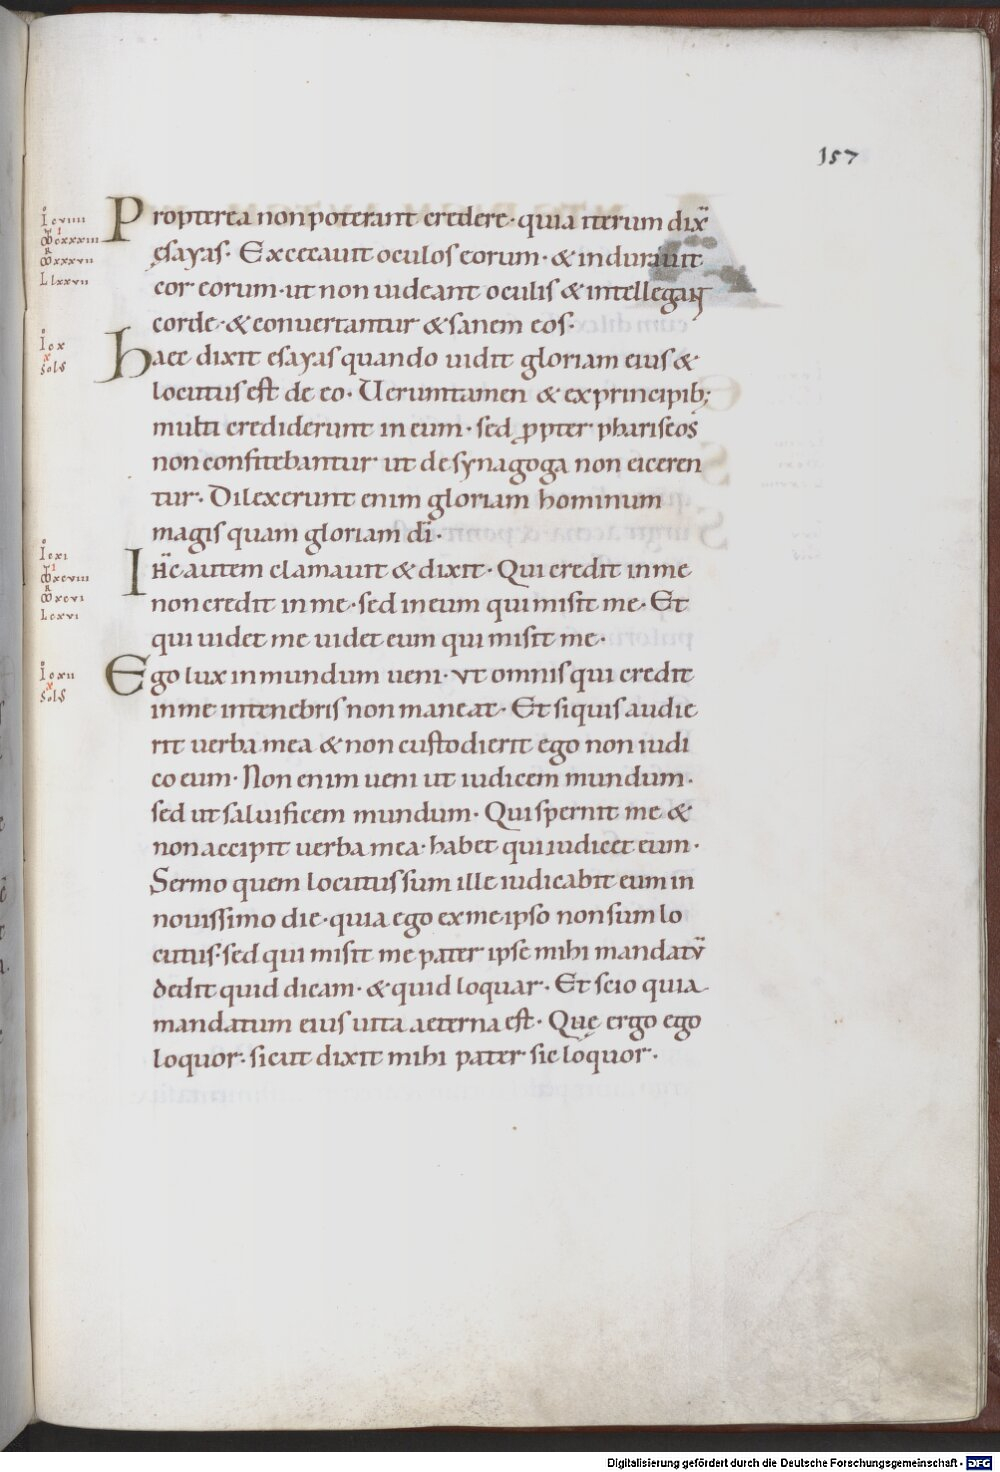 157
Propterea non poterant credere· quia iterum dix̄
ęsayas· Excecauit oculos eorum· & indurauit
cor eorum· ut non uideant oculis & intellegant
corde· & conuertantur & sanem eos·
Haec dixit esayas quando uidit gloriam eius &
locutus est de eo· Ueruntamen & ex principib;
multi crediderunt in eum· sed ꝓpter phariseos
non confitebantur ut de synagoga non eiceren
tur· Dilexerunt enim gloriam hominum
magis quam gloriam dī·
IHC autem clamauit & dixit· Qui credit in me
non credit in me· sed in eum qui misit me· Et
qui uidet me uidet eum qui misit me·
Ego lux in mundum ueni· ut omnis qui credit
in me in tenebris non maneat· Et siquis audie
rit uerba mea & non custodierit ego non iudi
co eum· Non enim ueni ut iudicem mundum·
sed ut saluificem mundum· Qui spernit me &
non accipit uerba mea· habet qui iudicet eum·
Sermo quem locutus sum ille iudicabit eum in
nouissimo die· quia ego ex me ipso non sum lo
cutus· sed qui misit me pater ipse mihi mandatū
dedit quid dicam· & quid loquar· Et scio quia
mandatum eius uita aeterna est· Quę ergo ego
loquor· sicut dixit mihi pater sic loquor·
Digitalisierung gefördert durch die Deutsche Forschungsgemeinschaft - DFG